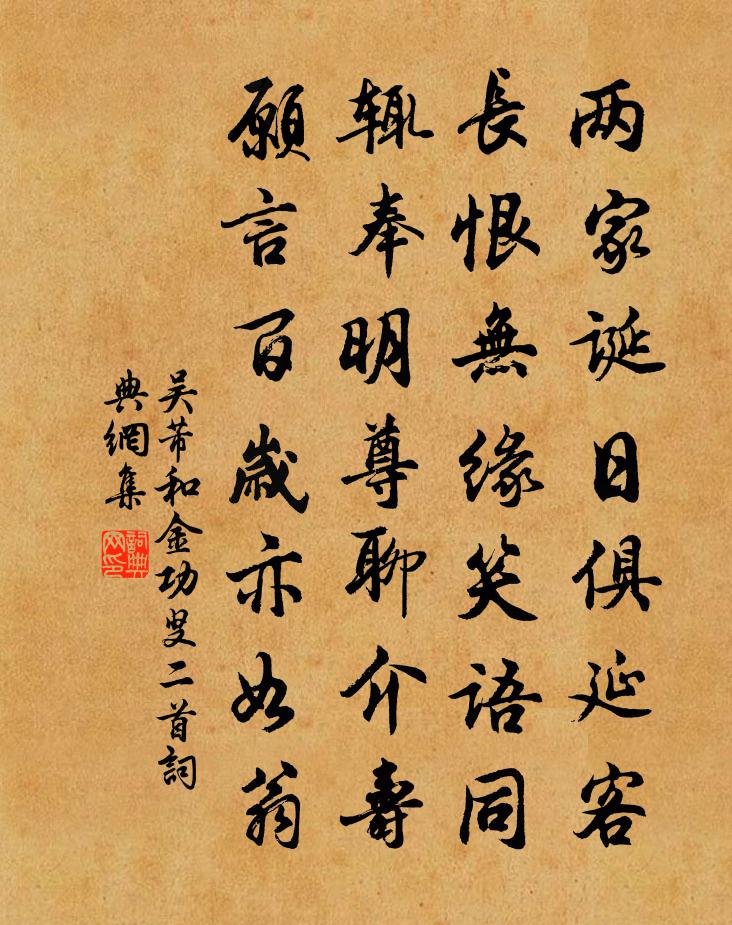 两家誕日俱延客
長恨無緣笑語同
輙奉明尊聊介壽
願言百歲亦如翁
吴芾和金功叟二首詞
典網集
詞典
网印